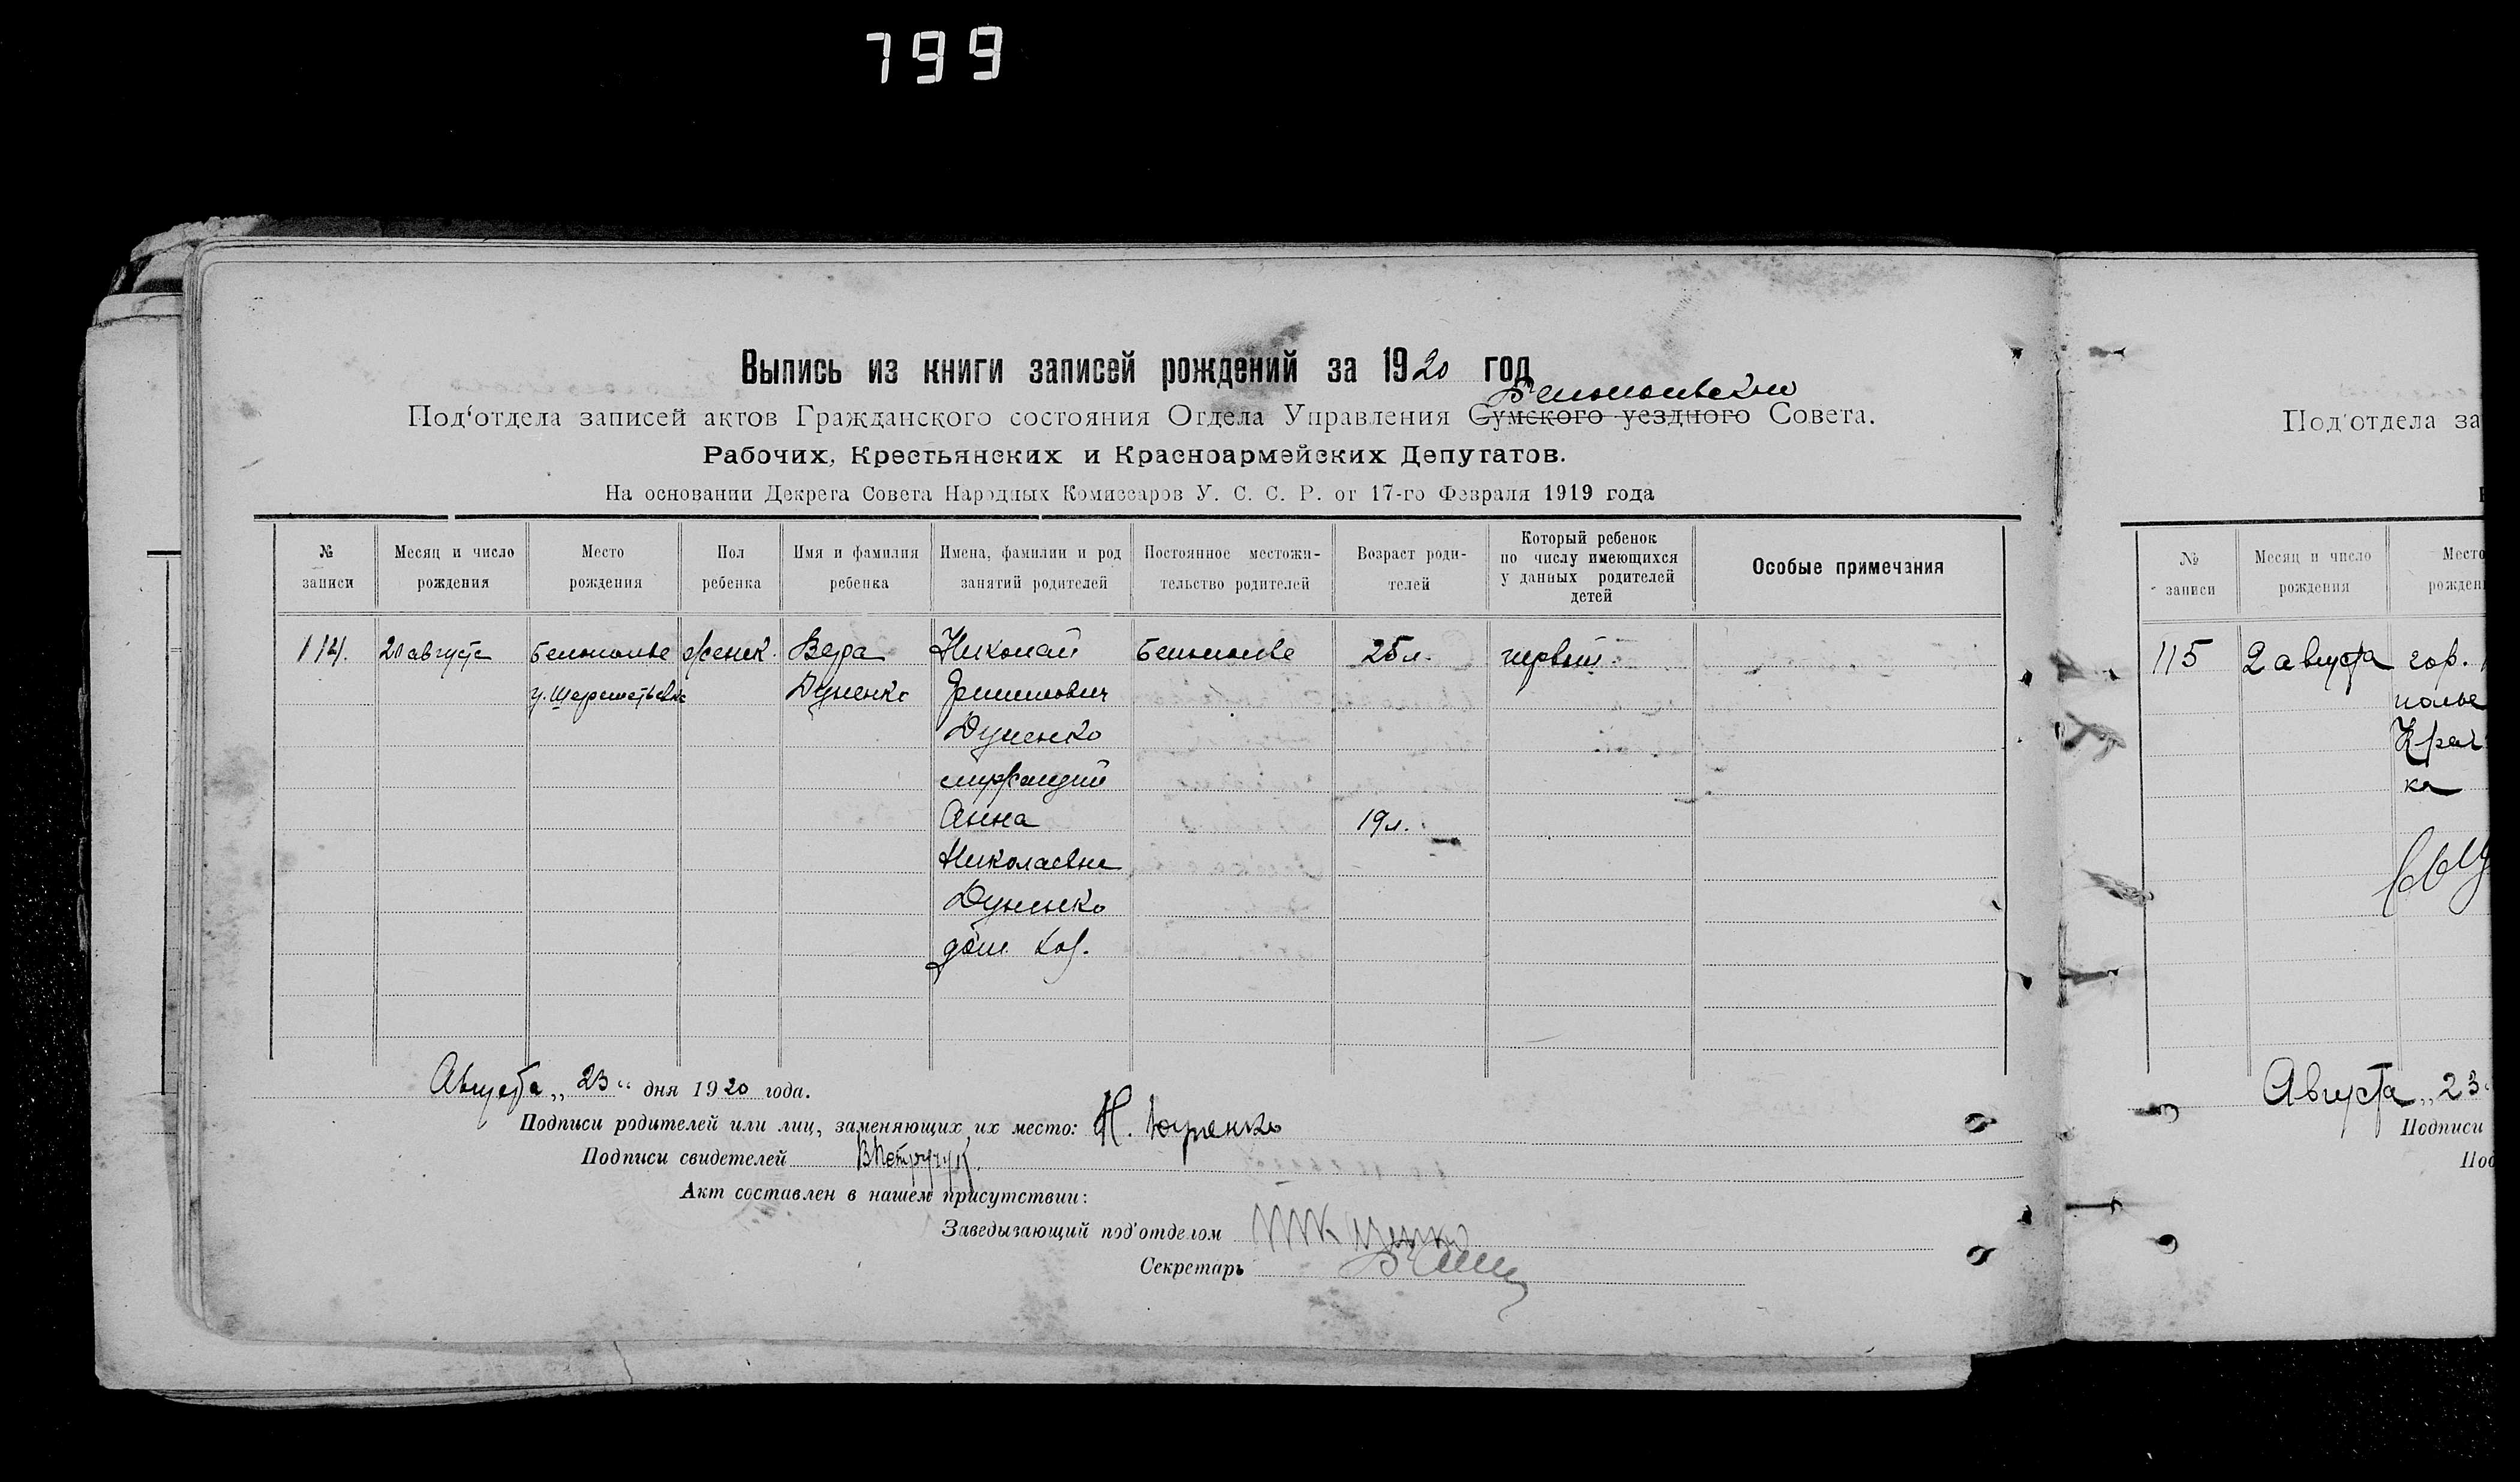 799
Выпись из книги записей рождений за 1920 год
Белопольского
Под'отдела записей актов Гражданского состояния Отдела Управления Сумского уездного Совета.
Рабочих, Крестьянских и Красноармейских Депутатов.
На основании Декрета Совета Народных Комиссаров У. С. С. Р. от 17-го Февраля 1919 года
№ записи
Месяц и число рождения
Место рождения
Пол ребенка
Имя и фамилия ребенка
Имена, фамилии и род занятий родителей
Постоянное местожительство родителей
Возраст родителей
Который ребенок по числу имеющихся у данных родителей детей
Особые примечания
114. 20 августа Белополье женск. Вера Николай Белополье 25 л. первый.
Дуненко Филипович
Дуненко
служащий
Анна 19 л.
Николаевна
Дуненко
дом. хоз.
Августа „23“ дня 1920 года.
Подписи родителей или лиц, заменяющих их место: Н.
Подписи свидетелей
Акт составлен в нашем присутствии:
Заведывающий под'отделом
Секретарь
Под'отдела за
№ записи
Месяц и число рождения
Место рожден
115 2 августа гор.
полье
ка
Августа „23
Подписи
Под